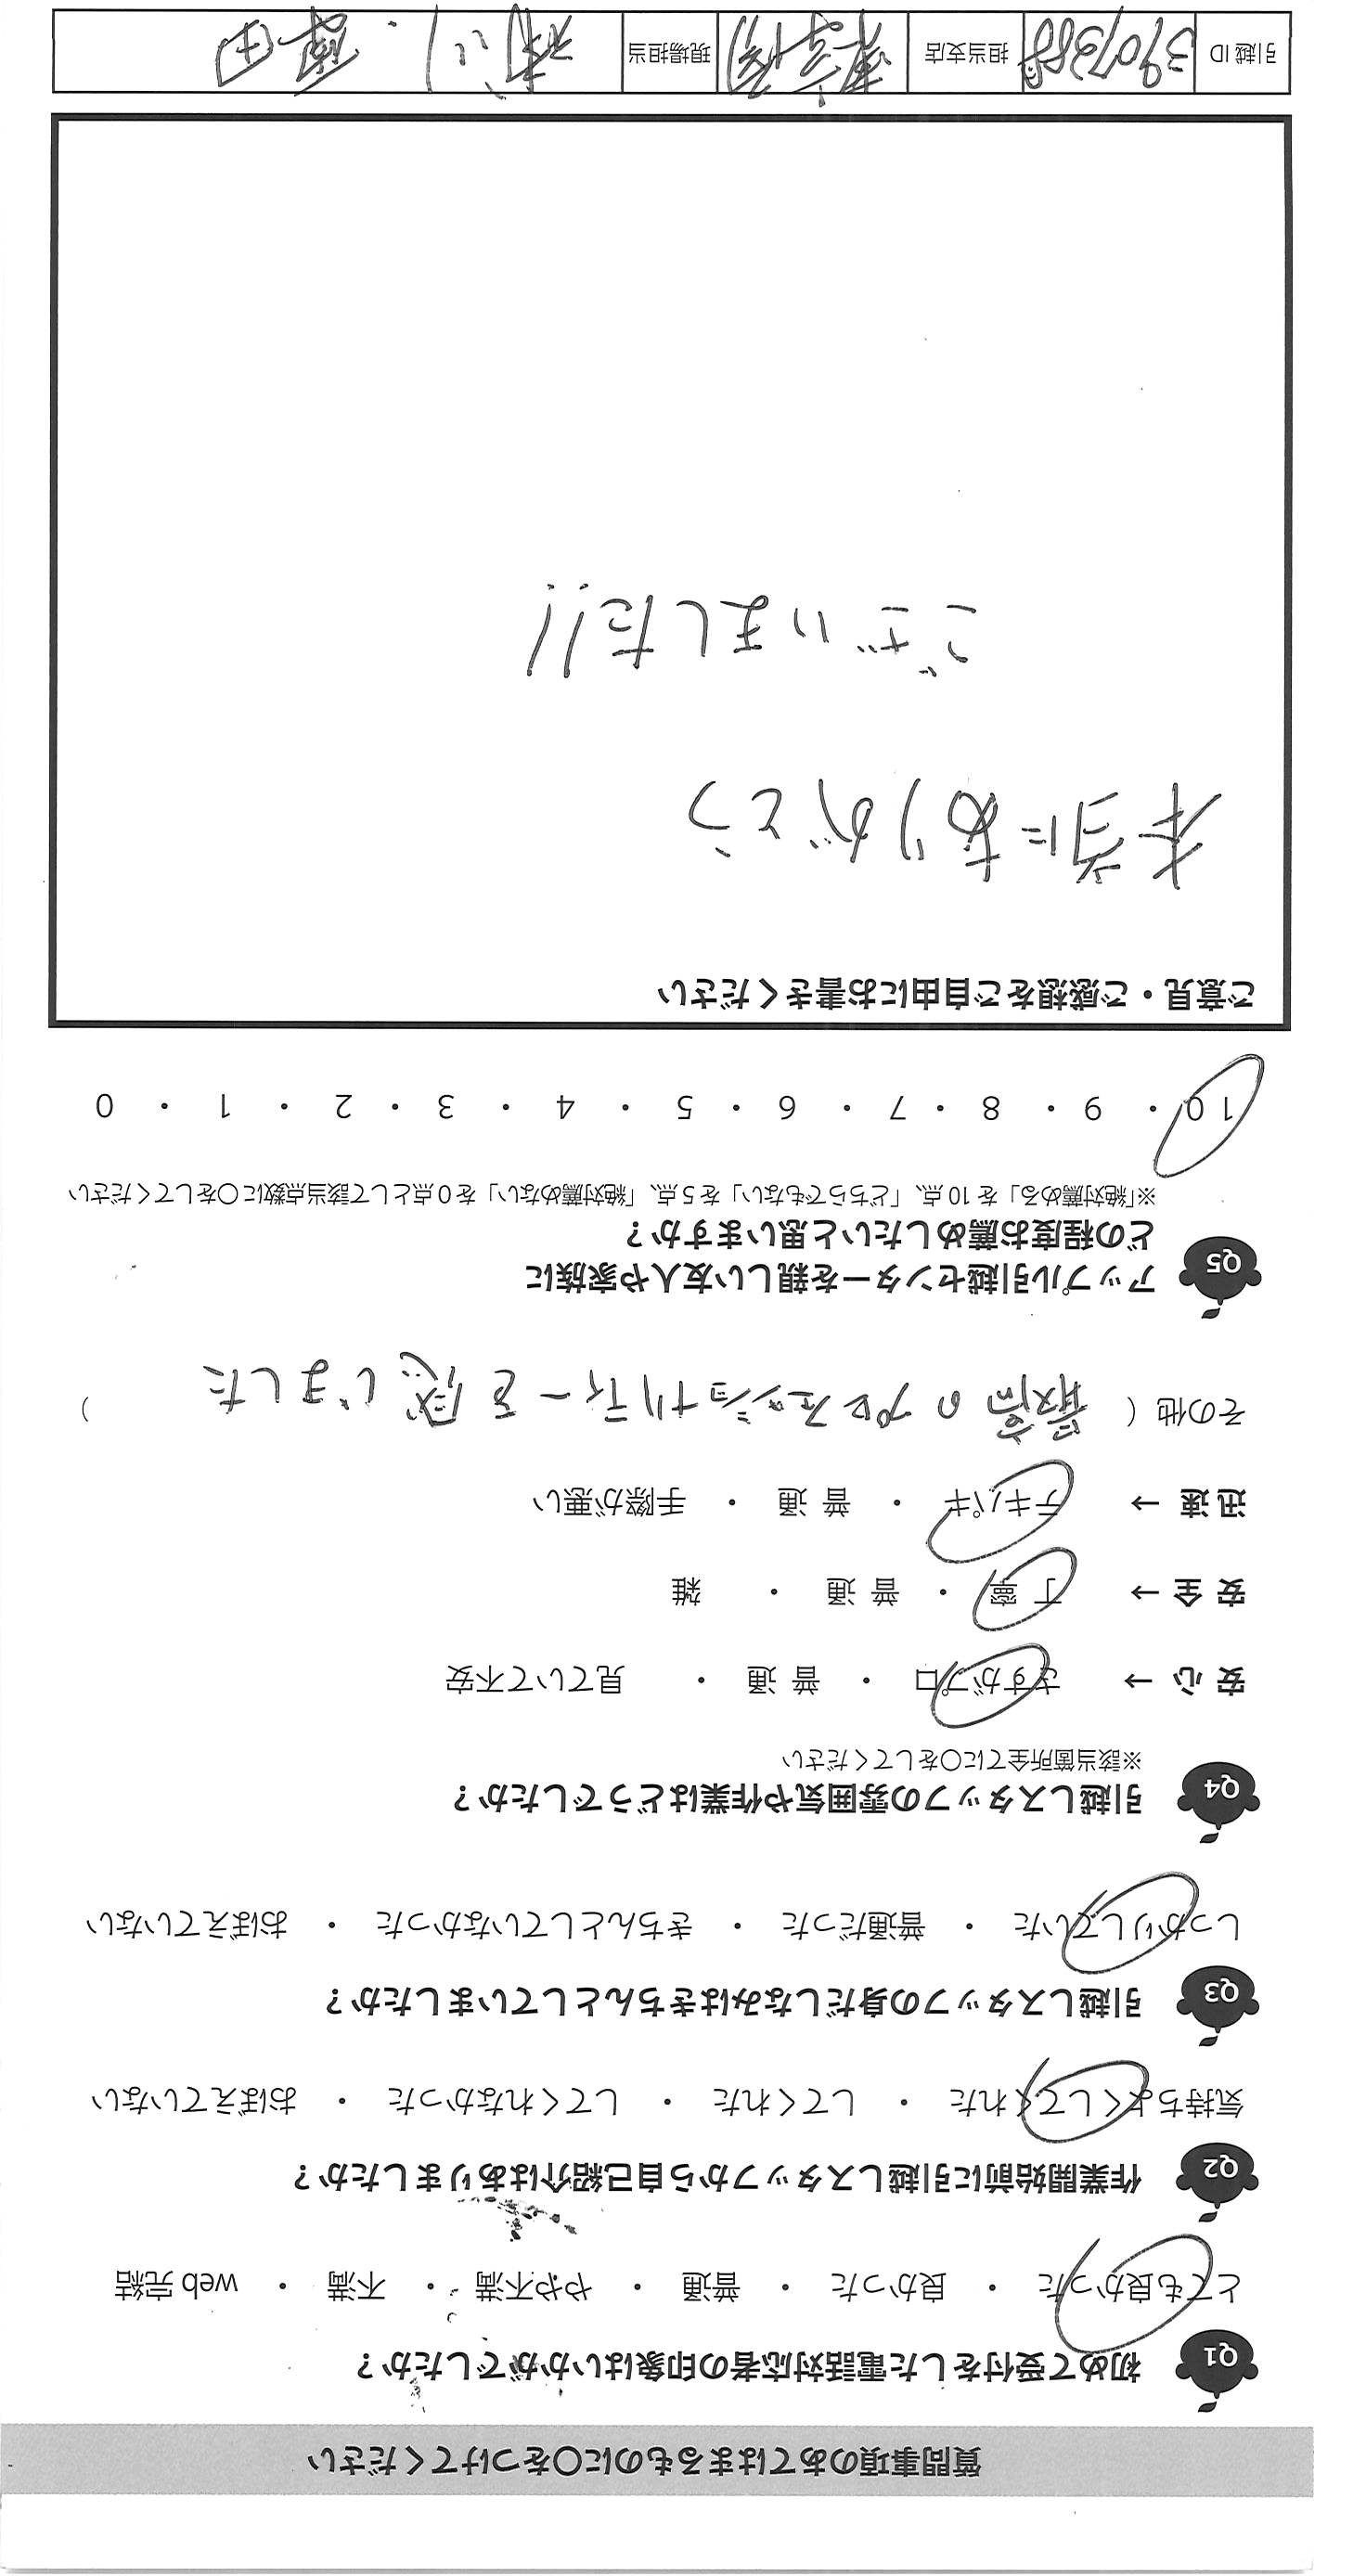 質問事項のあてはまるものに〇をつけてください
Q1 初めて受付をした電話対応者の印象はいかがでしたか？
とても良かった ・ 良かった ・ 普通 ・ やや不満 ・ 不満 ・ web 完結
Q2 作業開始前に引越しスタッフから自己紹介はありましたか？
気持ちよくしてくれた ・ してくれた ・ してくれなかった ・ おぼえていない
Q3 引越しスタッフの身だしなみはきちんとしていましたか？
しっかりしていた ・ 普通だった ・ きちんとしていなかった ・ おぼえていない
Q4 引越しスタッフの雰囲気や作業はどうでしたか？
※該当箇所全てに〇をしてください
安 心 → さすがプロ ・ 普 通 ・ 見ていて不安
安 全 → 丁 寧 ・ 普 通 ・ 雑
迅 速 → テキパキ ・ 普 通 ・ 手際が悪い
その他（ 最高のプロフェッショナリティーを感じました ）
Q5 アップル引越センターを親しい友人や家族に
どの程度お薦めしたいと思いますか？
※「絶対薦める」を 10 点、「どちらでもない」を 5 点、「絶対薦めない」を 0 点として該当点数に〇をしてください
10 ・ 9 ・ 8 ・ 7 ・ 6 ・ 5 ・ 4 ・ 3 ・ 2 ・ 1 ・ 0
ご意見・ご感想をご自由にお書きください
本当にありがとう
ございました!!
引越 ID 担当支店 現場担当